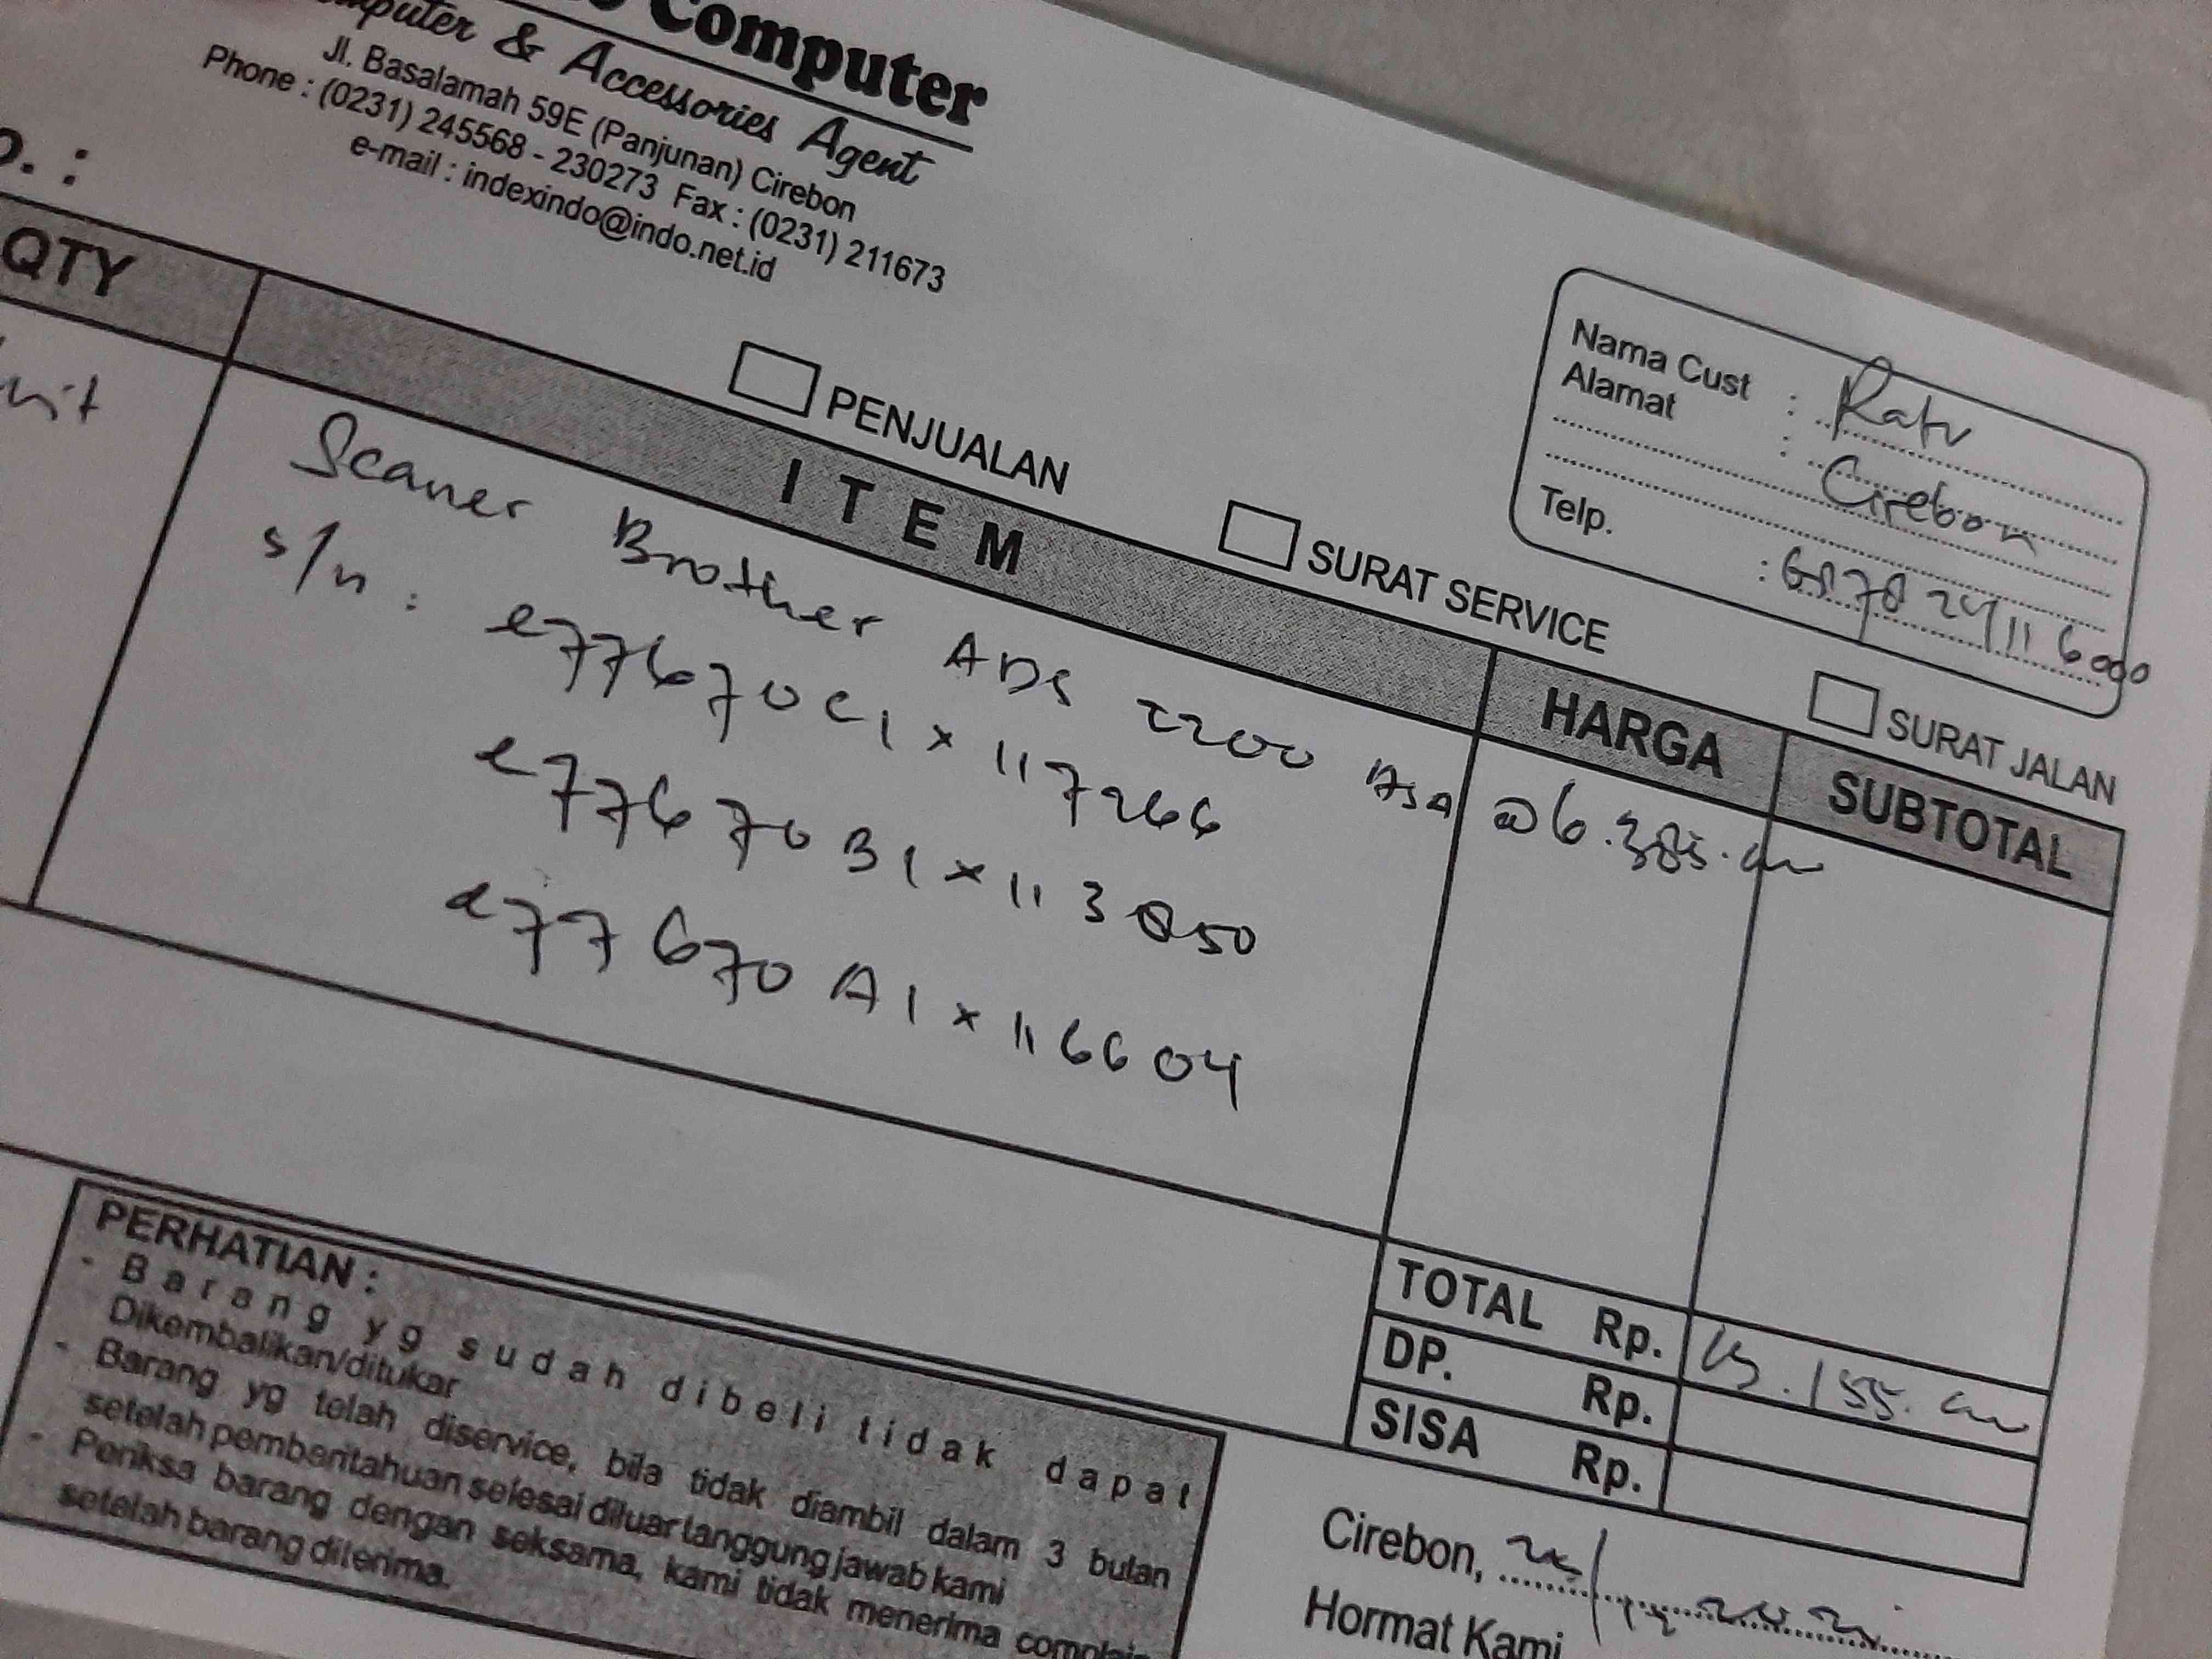 Computer
Computer & Accessories Agent
Jl. Basalamah 59E (Panjunan) Cirebon
Phone : (0231) 245568 - 230273 Fax : (0231) 211673
e-mail : indexindo@indo.net.id
Nama Cust : Ratu
Alamat : Cirebon
Telp. :
PENJUALAN
SURAT SERVICE
SURAT JALAN
QTY ITEM HARGA SUBTOTAL
Scaner Brother ADS 2200 @6.385.
s/n : e77670C1x117266
e77670B1x113850
e77670A1x116604
TOTAL Rp. 155.
DP. Rp.
SISA Rp.
PERHATIAN :
- Barang yg sudah dibeli tidak dapat
Dikembalikan/ditukar
- Barang yg telah diservice, bila tidak diambil dalam 3 bulan
setelah pemberitahuan selesai diluar tanggung jawab kami
- Periksa barang dengan seksama, kami tidak menerima complain
setelah barang diterima.
Cirebon,
Hormat Kami